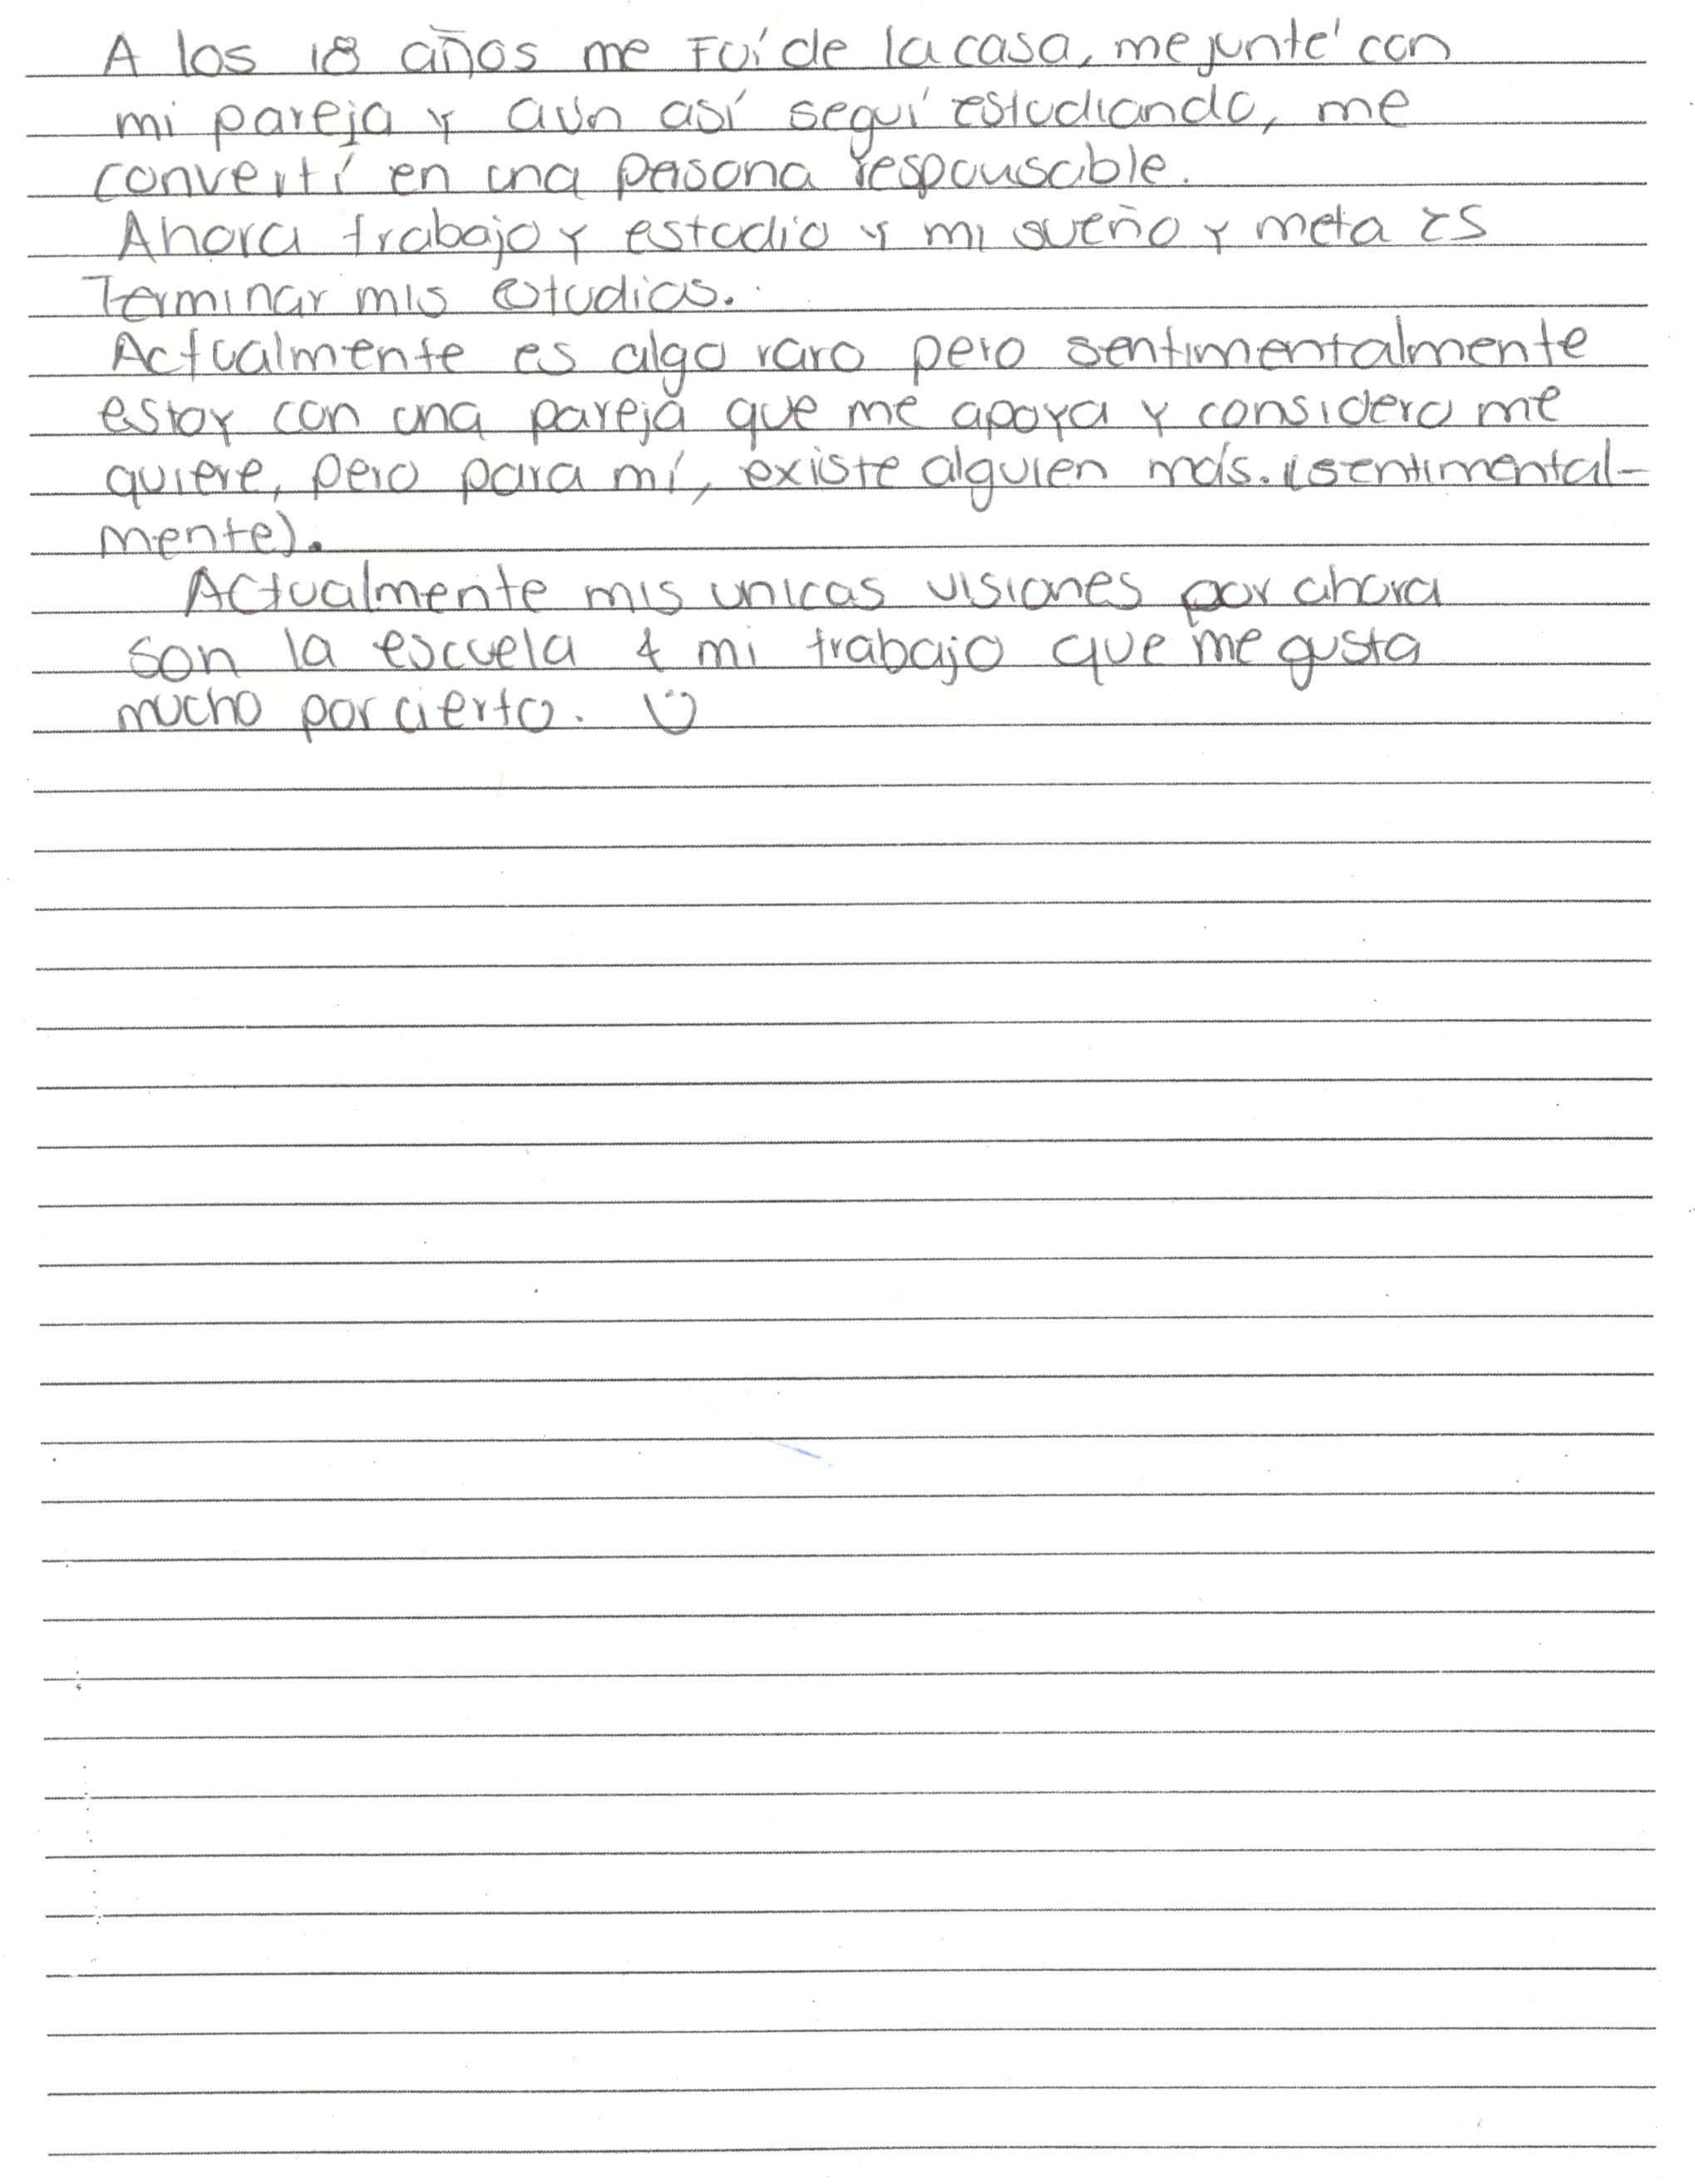 A los 18 años me fuí de la casa, me junté con
mi pareja y aún así seguí estudiando, me
convertí en una persona responsable.
Ahora trabajo y estudio y mi sueño y meta es
Terminar mis estudios.
Actualmente es algo raro pero sentimentalmente
estoy con una pareja que me apoya y considero me
quiere, pero para mí, existe alguien más. (sentimental-
mente).
Actualmente mis unicas visiones por ahora
son la escuela & mi trabajo que me gusta
mucho por cierto. Ü